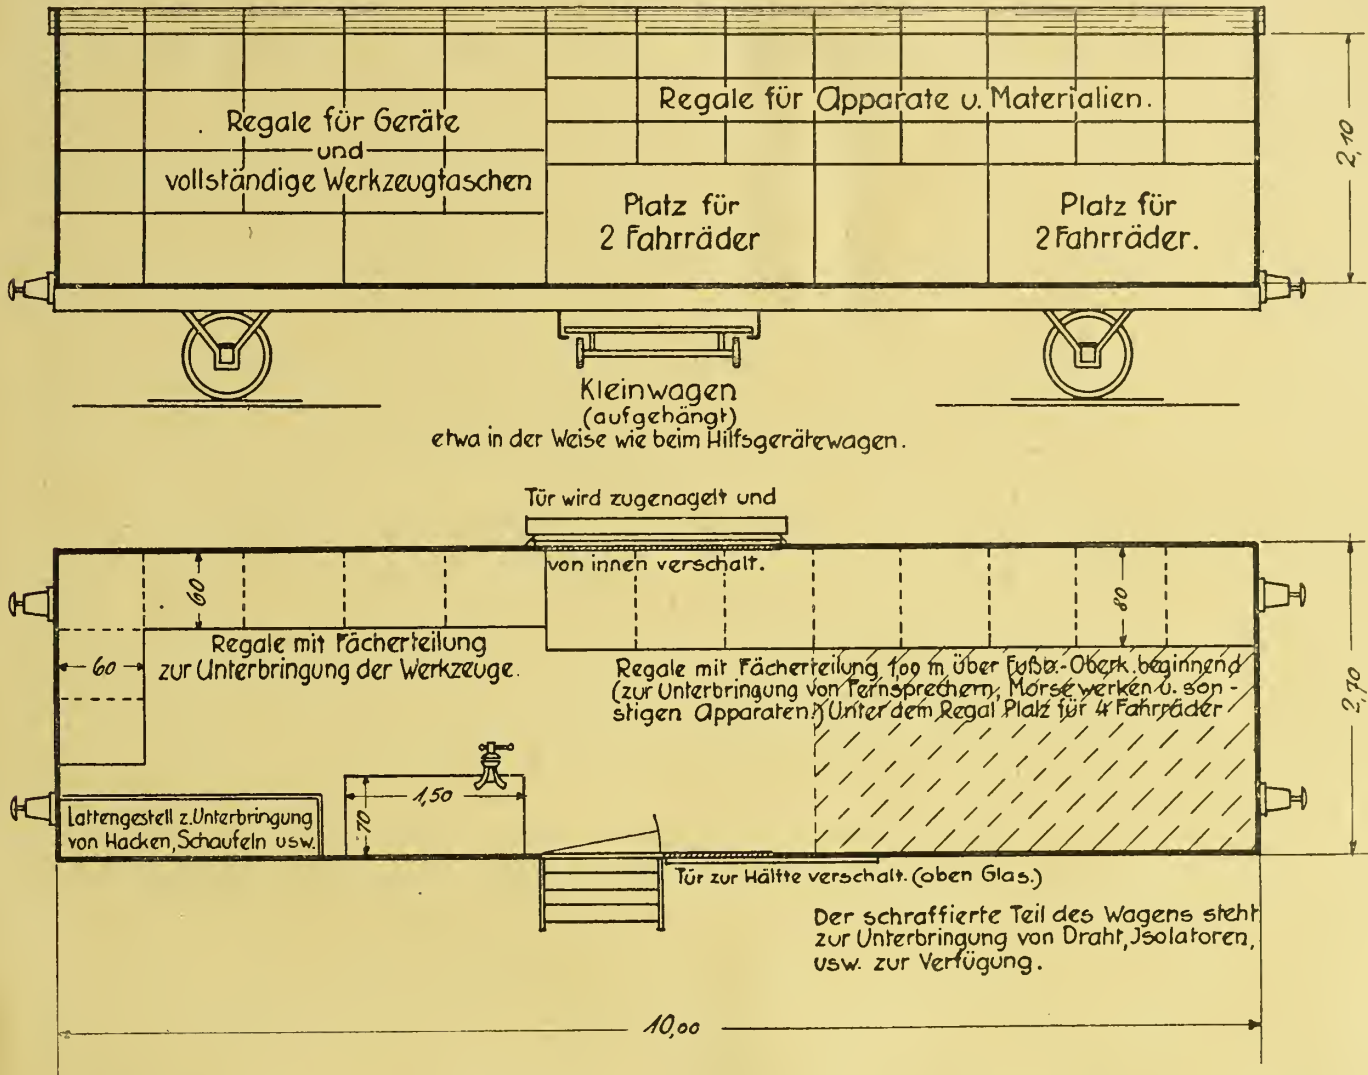 Regale für Geräte
und
vollständige Werkzeugtaschen
Regale für Apparate u. Materialien.
Platz für
2 Fahrräder
Platz für
2 Fahrräder.
2,10
Kleinwagen
(aufgehängt)
etwa in der Weise wie beim Hilfsgerätewagen.
Tür wird zugenagelt und
von innen verschalt.
60
80
60
Regale mit Fächerteilung
zur Unterbringung der Werkzeuge.
Regale mit Fächerteilung 1,00 m über Fußb.-Oberk. beginnend
(zur Unterbringung von Fernsprechern, Morsewerken u. son-
stigen Apparaten.) Unter dem Regal Platz für 4 Fahrräder
2,70
1,50
70
Lattengestell z. Unterbringung
von Hacken, Schaufeln usw.
Tür zur Hälfte verschalt. (oben Glas.)
Der schraffierte Teil des Wagens steht
zur Unterbringung von Draht, Jsolatoren,
usw. zur Verfügung.
10,00